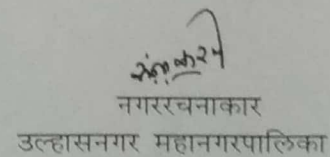 नगररचनाकार
उल्हासनगर महानगरपालिका